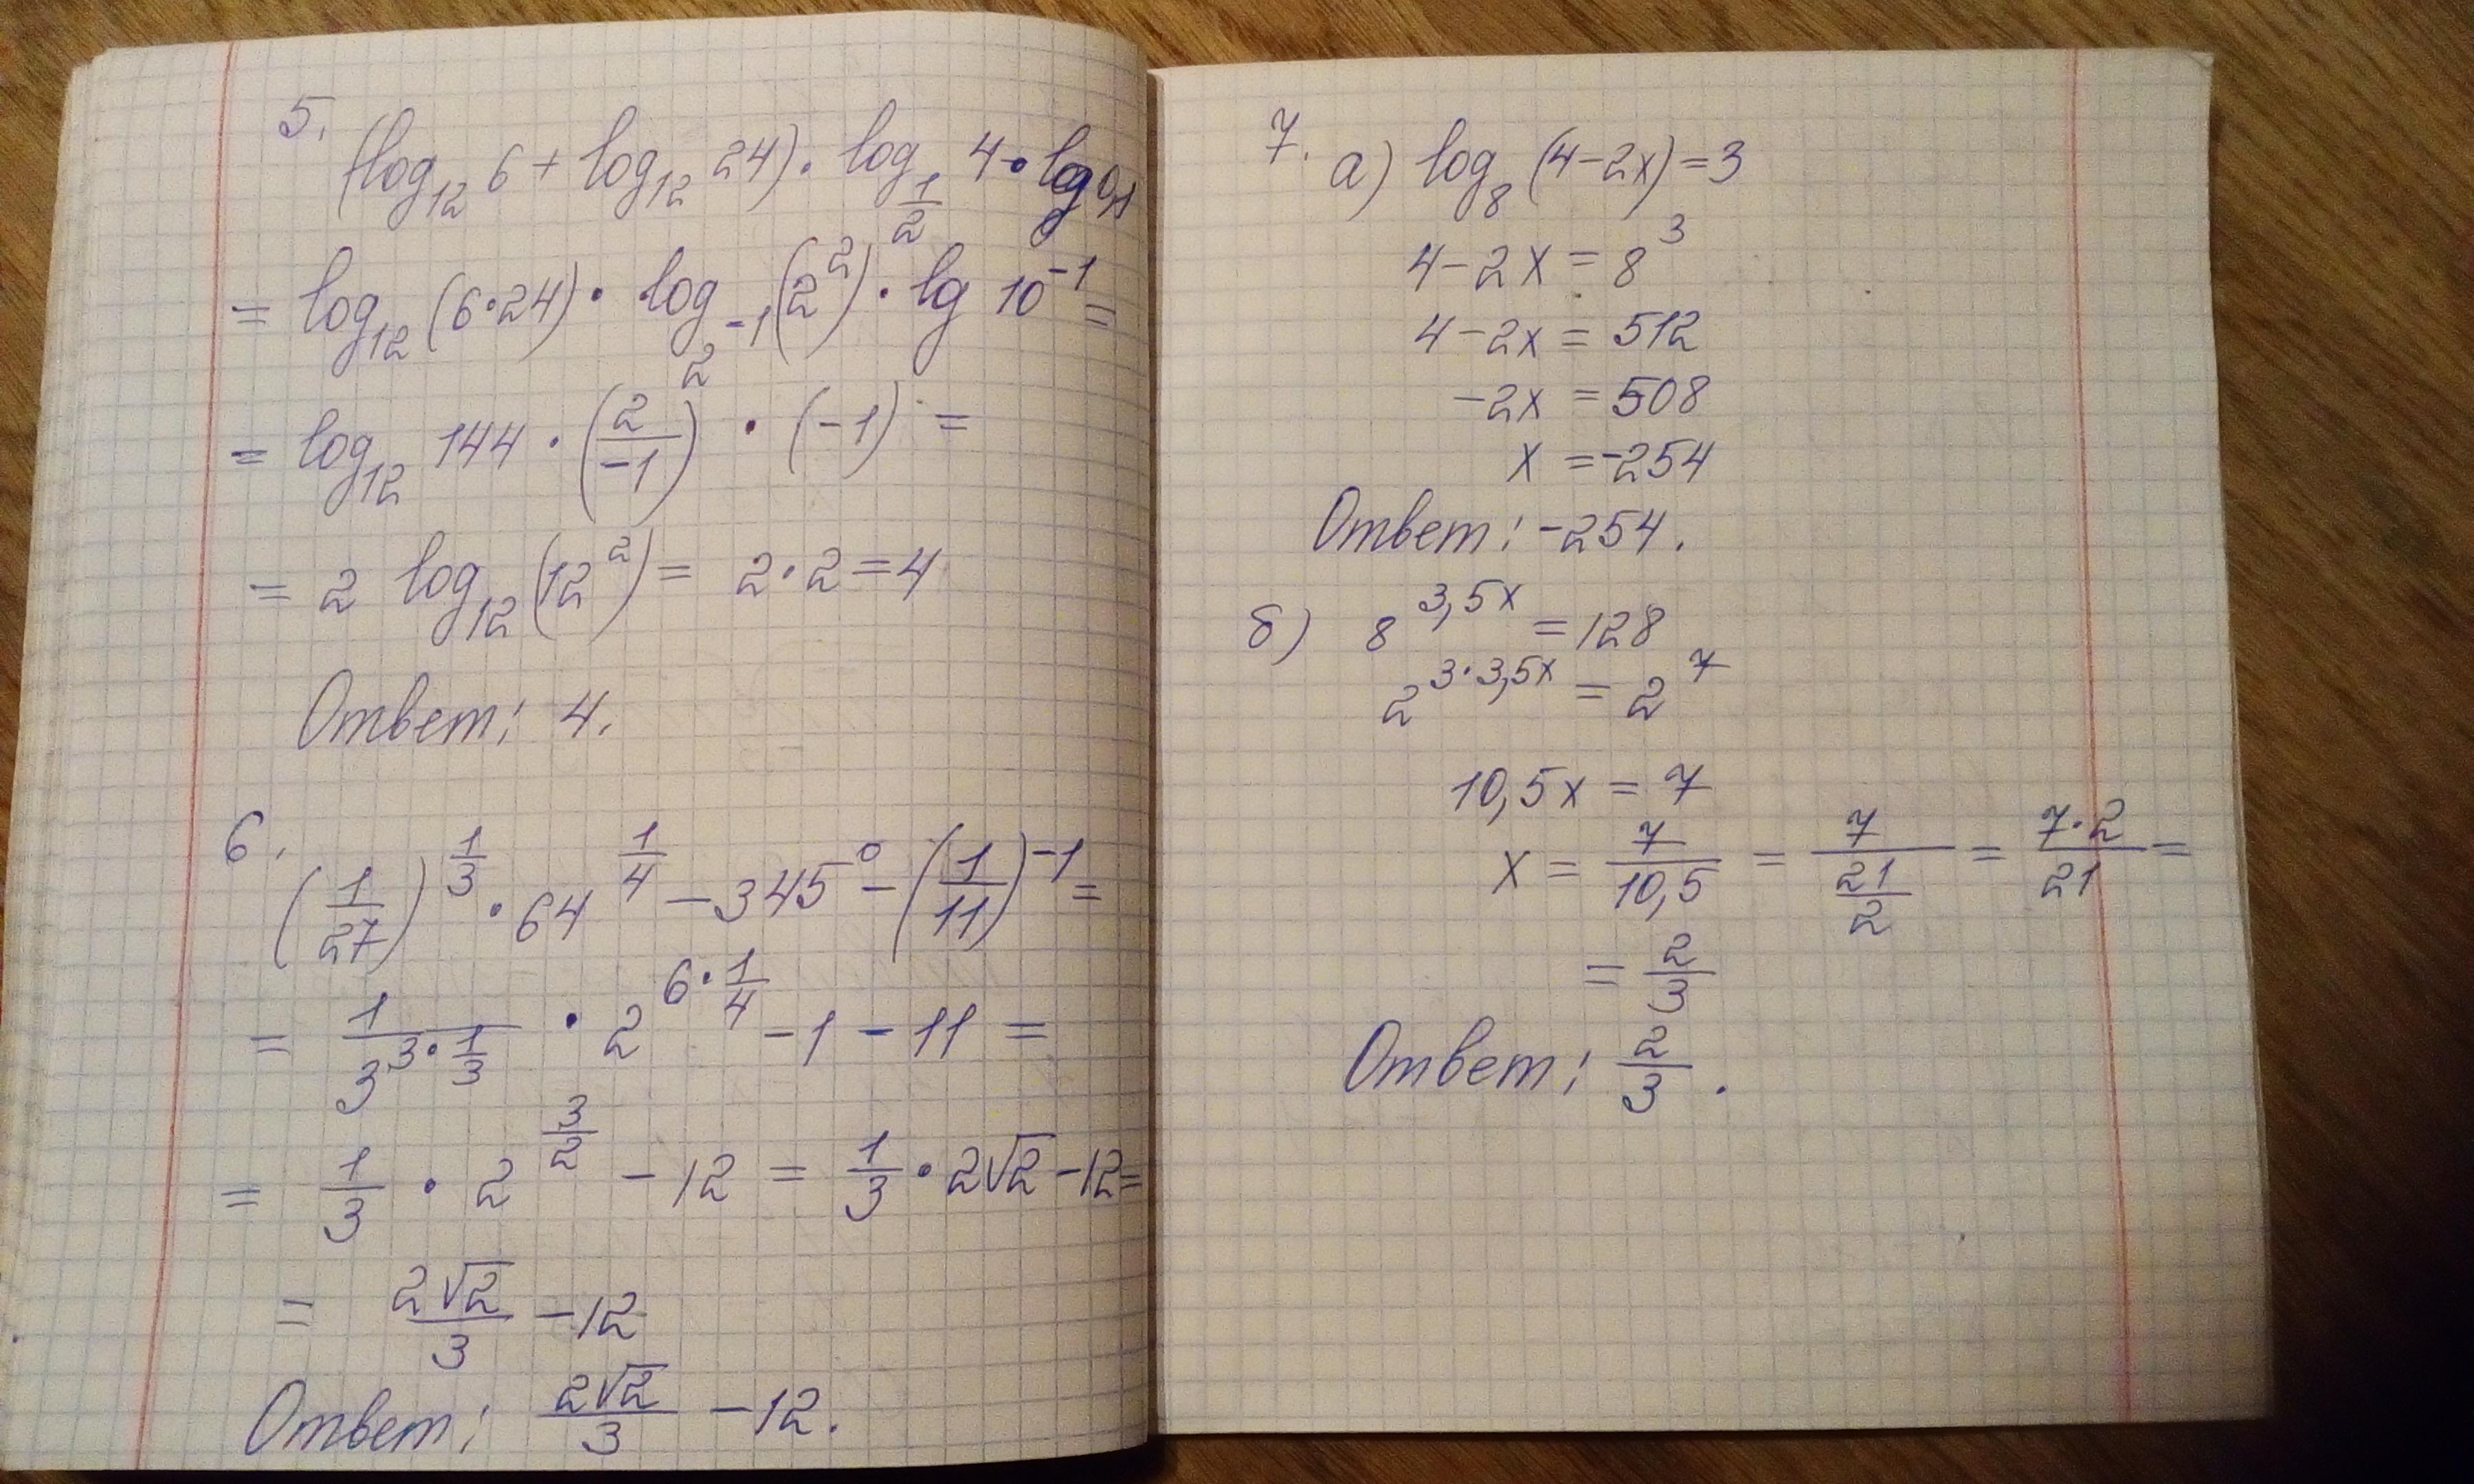 5.
(log₁₂ 6 + log₁₂ 24) · log_{1/2} 4 · lg 0,1
= log₁₂ (6·24) · log_{2⁻¹} (2²) · lg 10⁻¹ =
= log₁₂ 144 · (2/-1) · (-1) =
= 2 log₁₂ (12²) = 2·2 = 4
Ответ: 4.
6.
(1/27)^{1/3} · 64^{1/4} - 345⁰ - (1/11)⁻¹ =
= 1/3^{3·1/3} · 2^{6·1/4} - 1 - 11 =
= 1/3 · 2^{3/2} - 12 = 1/3 · 2√2 - 12 =
= 2√2/3 - 12
Ответ: 2√2/3 - 12.
7. а) log₈ (4-2x) = 3
4-2x = 8³
4-2x = 512
-2x = 508
x = -254
Ответ: -254.
б) 8^{3,5x} = 128
2^{3·3,5x} = 2⁷
10,5x = 7
x = 7/10,5 = 7/(21/2) = 7·2/21 =
= 2/3
Ответ: 2/3.